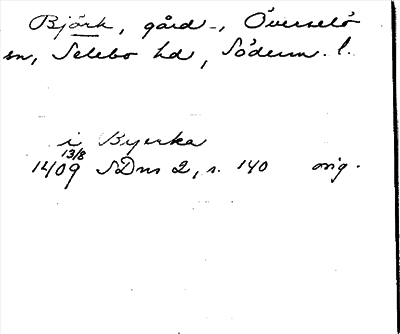 Björk, gård -, Överselö
sn, Selebo hd, Söderm. l.
i Byerka
1409 13/8 SDns 2, s. 140 orig.